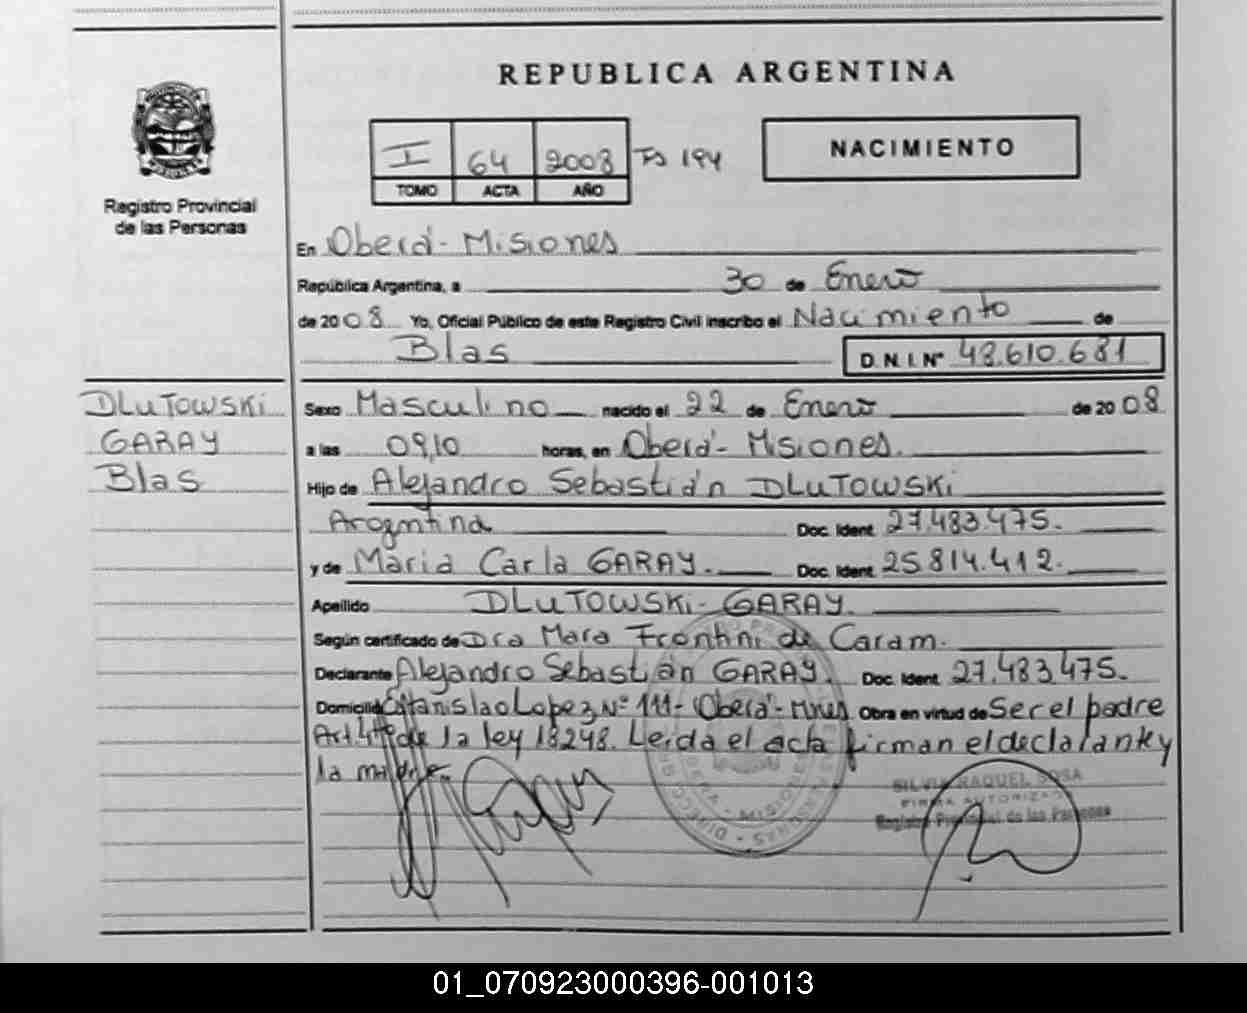 REPUBLICA ARGENTINA
I 64 2008 Fs 194
TOMO ACTA AÑO
NACIMIENTO
Registro Provincial
de las Personas
En Oberá - Misiones
República Argentina, a 30 de Enero
de 2008 Yo, Oficial Público de este Registro Civil inscribo el Nacimiento de
Blas D.N.I. Nº 48.610.681
DLUTOWSKI
GARAY
Blas
Sexo Masculino nacido el 22 de Enero de 2008
a las 09,10 horas, en Oberá - Misiones.
Hijo de Alejandro Sebastián DLUTOWSKI
Argentina Doc. Ident. 27.483.475.
y de María Carla GARAY. Doc. Ident. 25.814.412.
Apellido DLUTOWSKI - GARAY.
Según certificado de Dra Mara Frontini de Caram.
Declarante Alejandro Sebastián GARAY. Doc. Ident. 27.483.475.
Domicilio Estanislao Lopez Nº 111 - Oberá - Mnes Obra en virtud de Ser el padre
Art 4º de la ley 18248. Leída el acta firman el declarante y
la madre.
SILVIA RAQUEL SOSA
FIRMA AUTORIZADA
Registro Provincial de las Personas
01_070923000396-001013